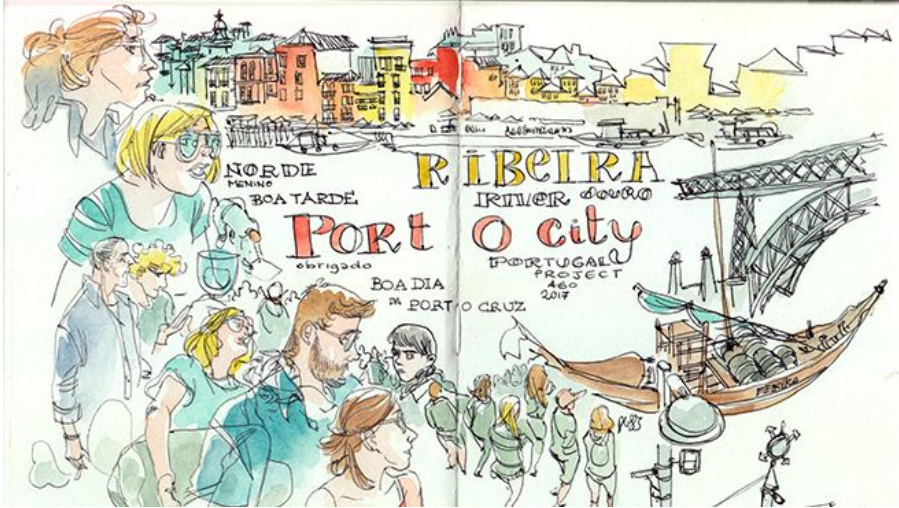 NORDIE
MENINO
BOA TARDE
RIBEIRA
RIVER DOURO
PORTO city
obrigado
PORTUGAL
PROJECT
460
2017
BOA DIA
PORTO CRUZ